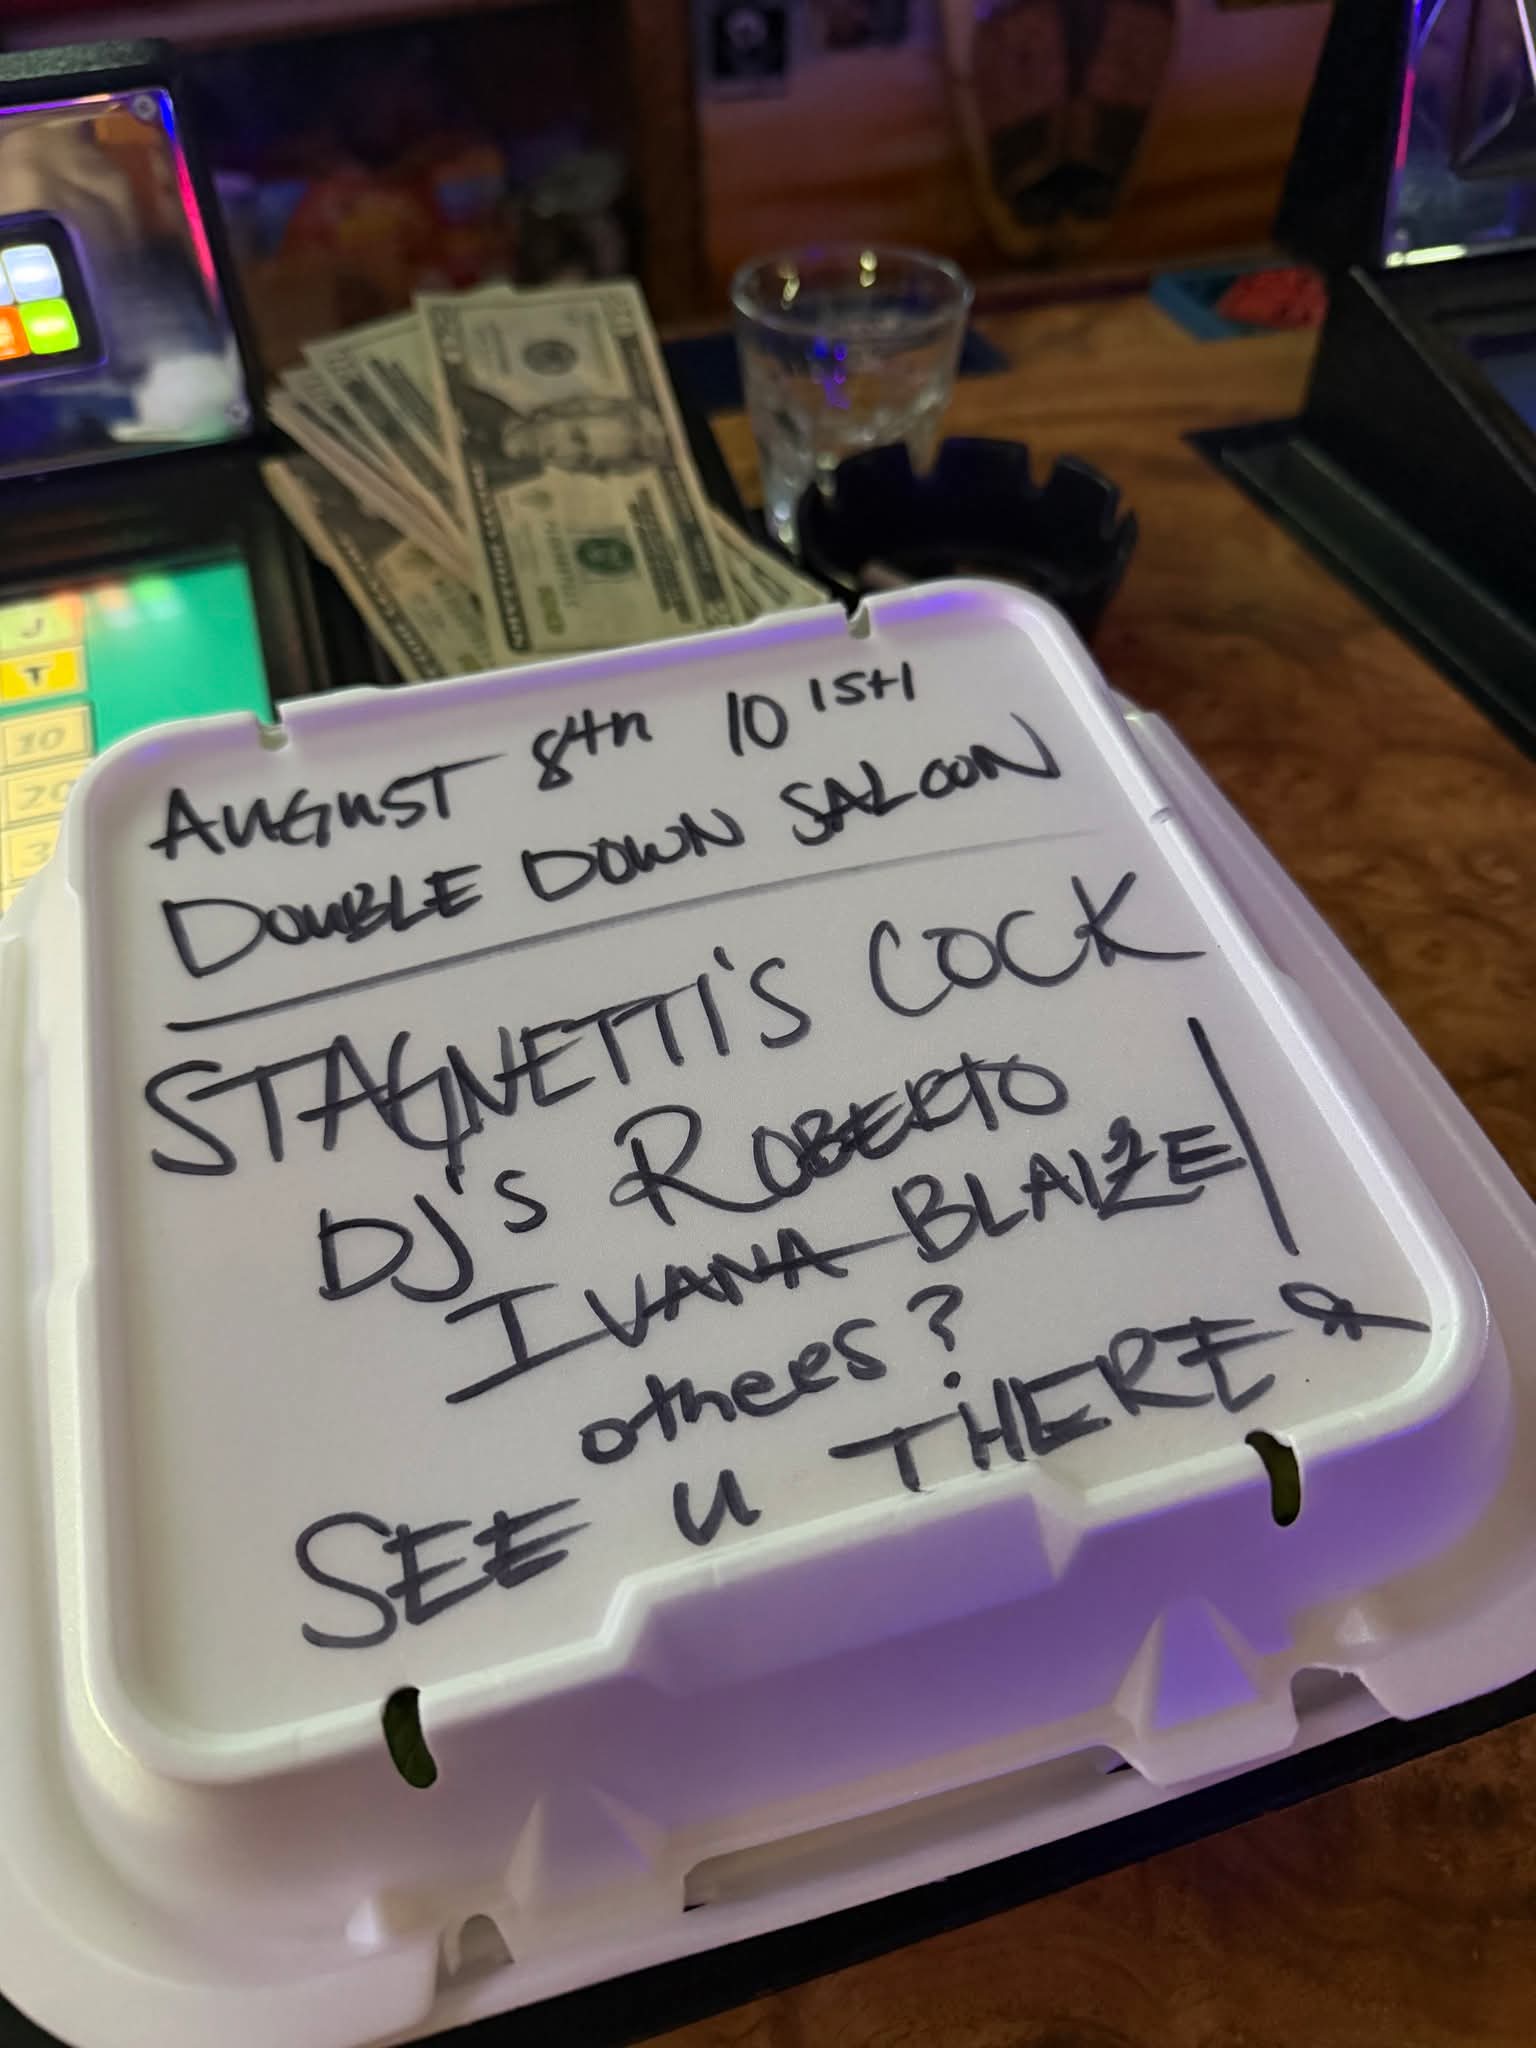 AUGUST 8th 10 15+1
DOUBLE DOWN SALOON
STAGNETTI'S COCK
DJ's ROBERTO
IVANA BLAIZE
others?
SEE U THERE
J
T
10
20
3